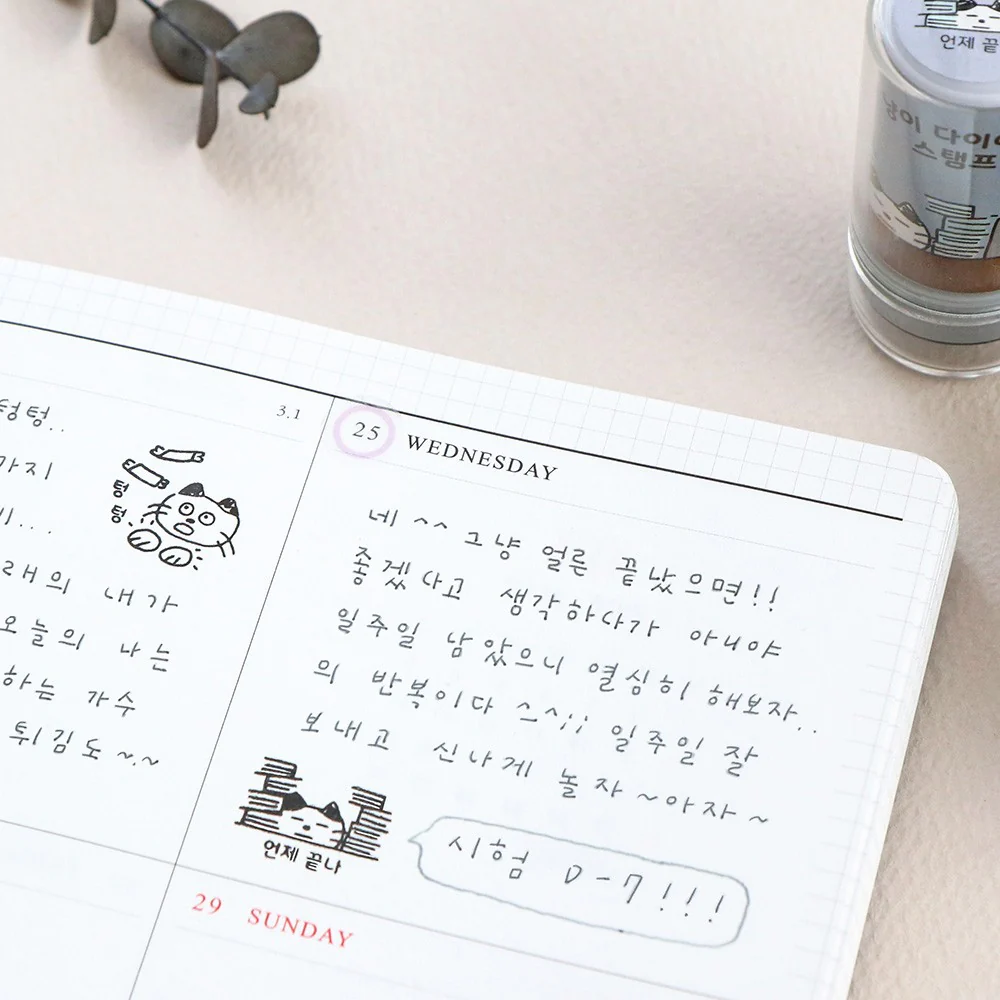 언제 끝
냥이 다이어
스탬프
텅텅..
까지
3.1
텅
텅
...
래의 내가
오늘의 나는
하는 가수
튀김도 ~.~
25 WEDNESDAY
네 ^^ 그냥 얼른 끝났으면!!
좋겠다고 생각하다가 아니야
일주일 남았으니 열심히 해보자..
의 반복이다 ^^;; 일주일 잘
보내고 신나게 놀자~아자~
언제 끝나
시험 D-7!!!
29 SUNDAY